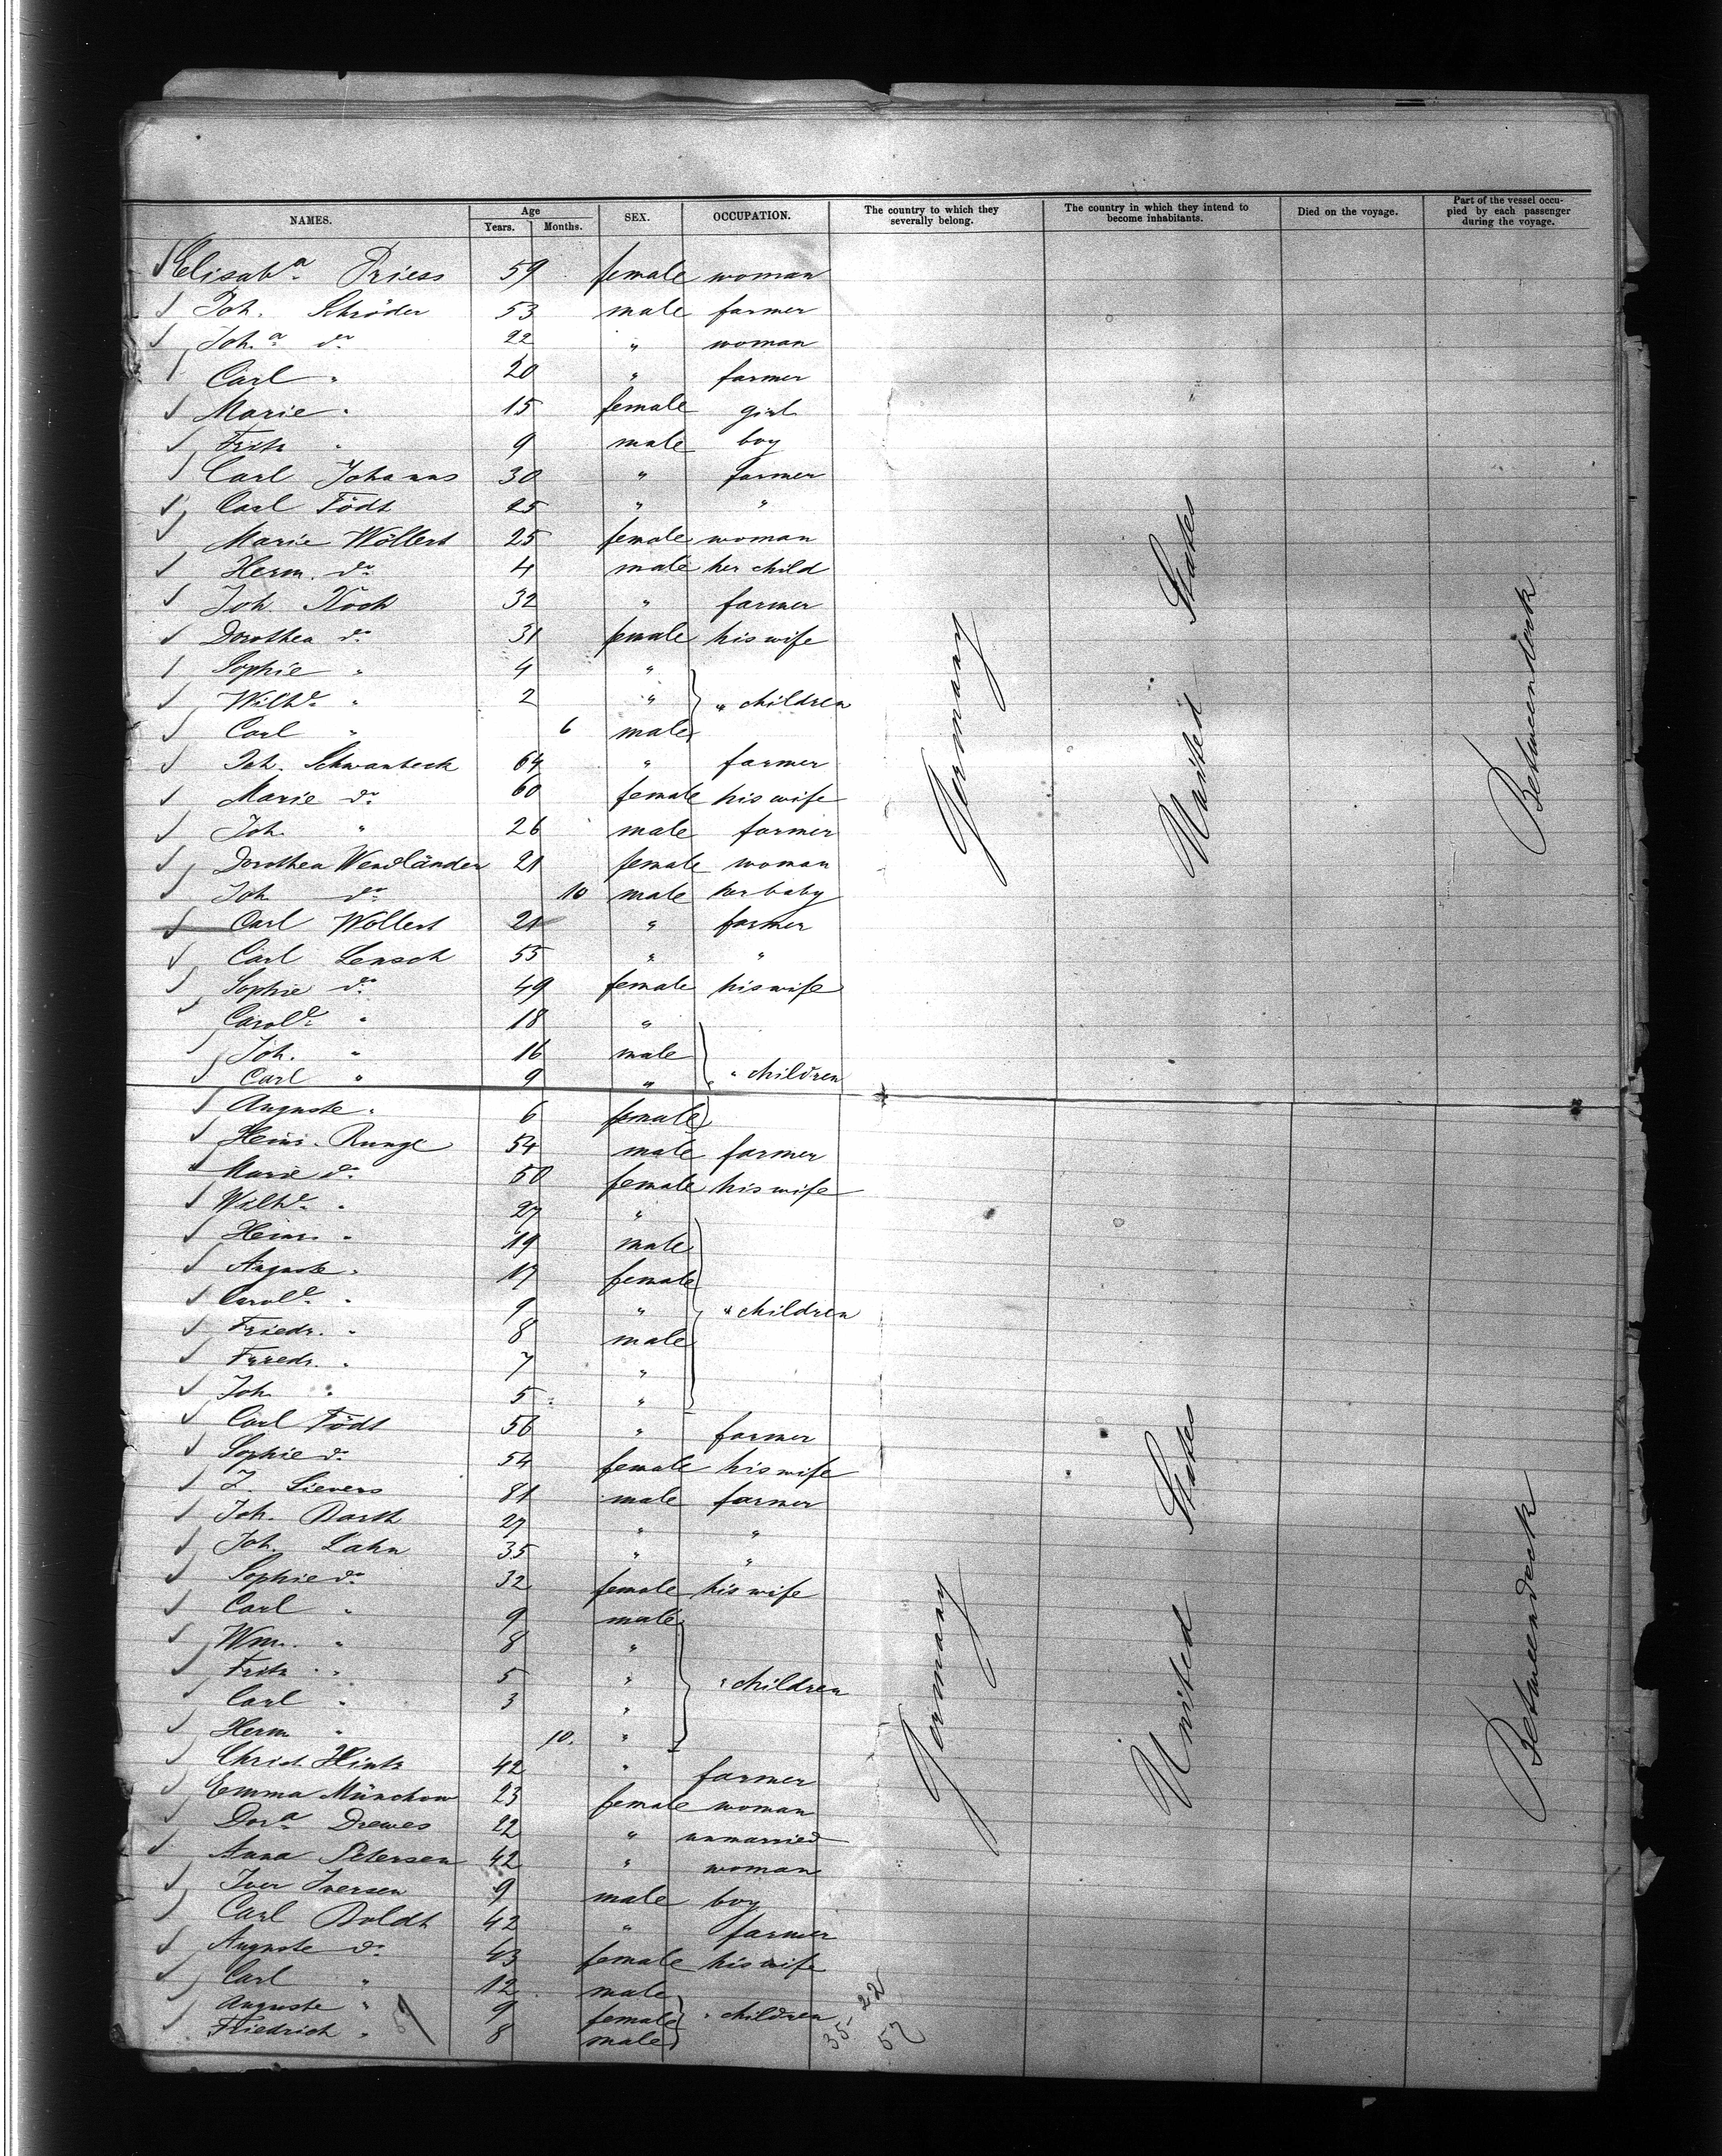 NAMES. Age SEX. OCCUPATION. The country to which they severally belong. The country in which they intend to become inhabitants. Died on the voyage. Part of the vessel occupied by each passenger during the voyage.
Years. Months.
Elisab.a Priess 59 female woman
Joh. Schröder 53 male farmer
Joh.a do 22 " woman
Carl " 20 " farmer
Marie " 15 female girl
Fritz " 9 male boy
Carl Johanns 30 " farmer
Carl Födt 25 " "
Marie Wöllert 25 female woman
Herm. do 4 male her child
Joh. Koch 32 " farmer
Dorothea do 31 female his wife
Sophie " 4 "
Wilh.e " 2 " " children
Carl " 6 male
Joh. Schwanbeck 64 " farmer
Marie do 60 female his wife
Joh. " 26 male farmer
Dorothea Wendländer 21 female woman
Joh. do 10 male her baby
Carl Wöllert 21 " farmer
Carl Lensch 55 " "
Sophie do 49 female his wife
Carol.e " 18 "
Joh. " 16 male
Carl " 9 " " children
Auguste " 6 female
Heinr. Runge 54 male farmer
Marie do 50 female his wife
Wilh.e " 27 "
Heinr. " 19 male
Auguste " 17 female
Carol.e " 9 " " children
Friedr. " 8 male
Friedr. " 7 "
Joh. " 5 "
Carl Födt 56 " farmer
Sophie do 54 female his wife
J. Sievers 81 male farmer
Joh. Barth 27 " "
Joh. Lahn 35 " "
Sophie do 32 female his wife
Carl " 9 male
Wm. " 8 "
Fritz " 5 " " children
Carl " 3 "
Herm " 10. "
Christ. Hintz 42 " farmer
Emma Münchow 23 female woman
Dor.a Drewes 22 " unmarried
Anna Petersen 42 " woman
Iver Iversen 9 male boy
Carl Boldt 42 " farmer
Auguste do 43 female his wife
Carl " 12 male
Auguste " 9 female " children
Friedrich " 8 male
Germany
United States
Betweendeck
Germany
United States
Betweendeck
35-22
57